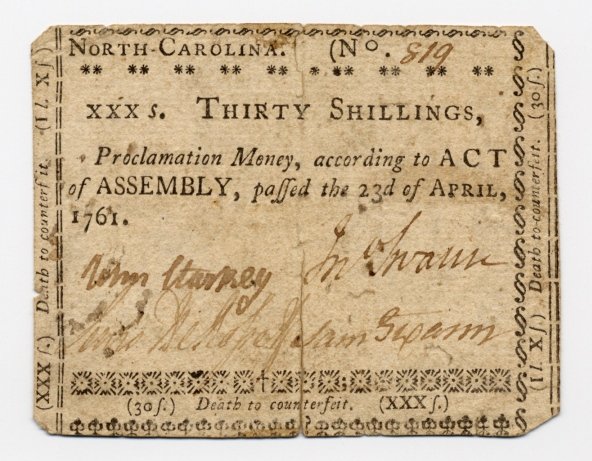 NORTH-CAROLINA. (Nº. 819
XXX s. THIRTY SHILLINGS,
Proclamation Money, according to ACT
of ASSEMBLY, paſſed the 23d of APRIL,
1761.
John Starkey
Jno Swann
Sam Swann
(30ſ.) Death to counterfeit. (XXXſ.)
(XXXſ.) Death to counterfeit. (1l. Xſ)
(1l. Xſ) Death to counterfeit. (30ſ.)